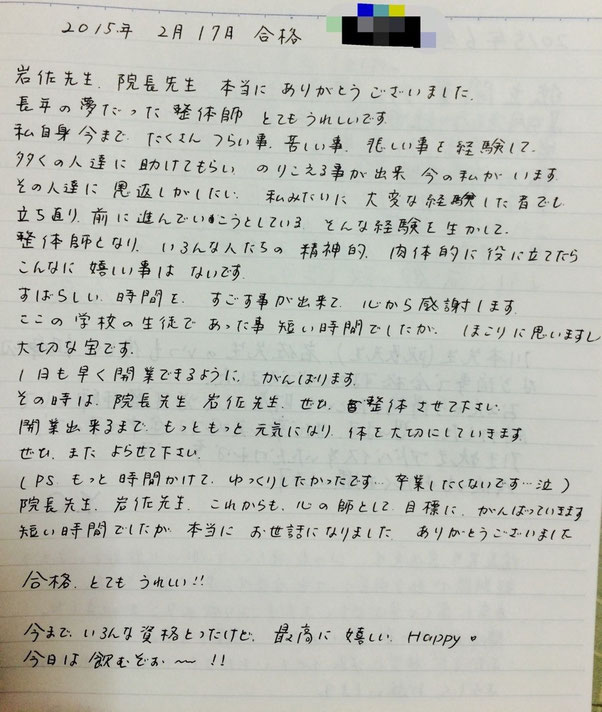 2015年 2月17日 合格
岩佐先生、院長先生 本当に ありがとう ございました。
長年の夢だった 整体師 とても うれしいです
私自身 今まで、たくさん つらい事、苦しい事、悲しい事を 経験して、
多くの人達に 助けてもらい のりこえる事が出来 今の私が います。
その人達に 恩返しがしたい。 私みたいに 大変な経験した者でし
立ち直り、前に進んでいこうとしている そんな経験を 生かして、
整体師となり、いろんな人たちの 精神的、肉体的に 役に立てたら
こんなに 嬉しい事は ないです。
すばらしい 時間を、 すごす事が出来て、心から 感謝します。
ここの 学校の生徒で あった事 短い時間でしたが、 ほこりに思いますし
大切な宝です。
1日も早く開業できるように、がんばります。
その時は、院長先生 岩佐先生、ぜひ 整体させて下さい。
開業出来るまで、もっともっと 元気になり、体を大切にしていきます。
ぜひ、また よらせて下さい。
(PS もっと時間かけて、ゆっくりしたかったです… 卒業したくないです…泣)
院長先生、岩佐先生、これからも、心の師として、目標に、がんばっていきます
短い時間でしたが 本当に お世話になりました。 ありがとうございました
合格、とても うれしい!!
今まで、いろんな資格とったけど、最高に 嬉しい。Happy。
今日は 飲むぞぉ〜!!